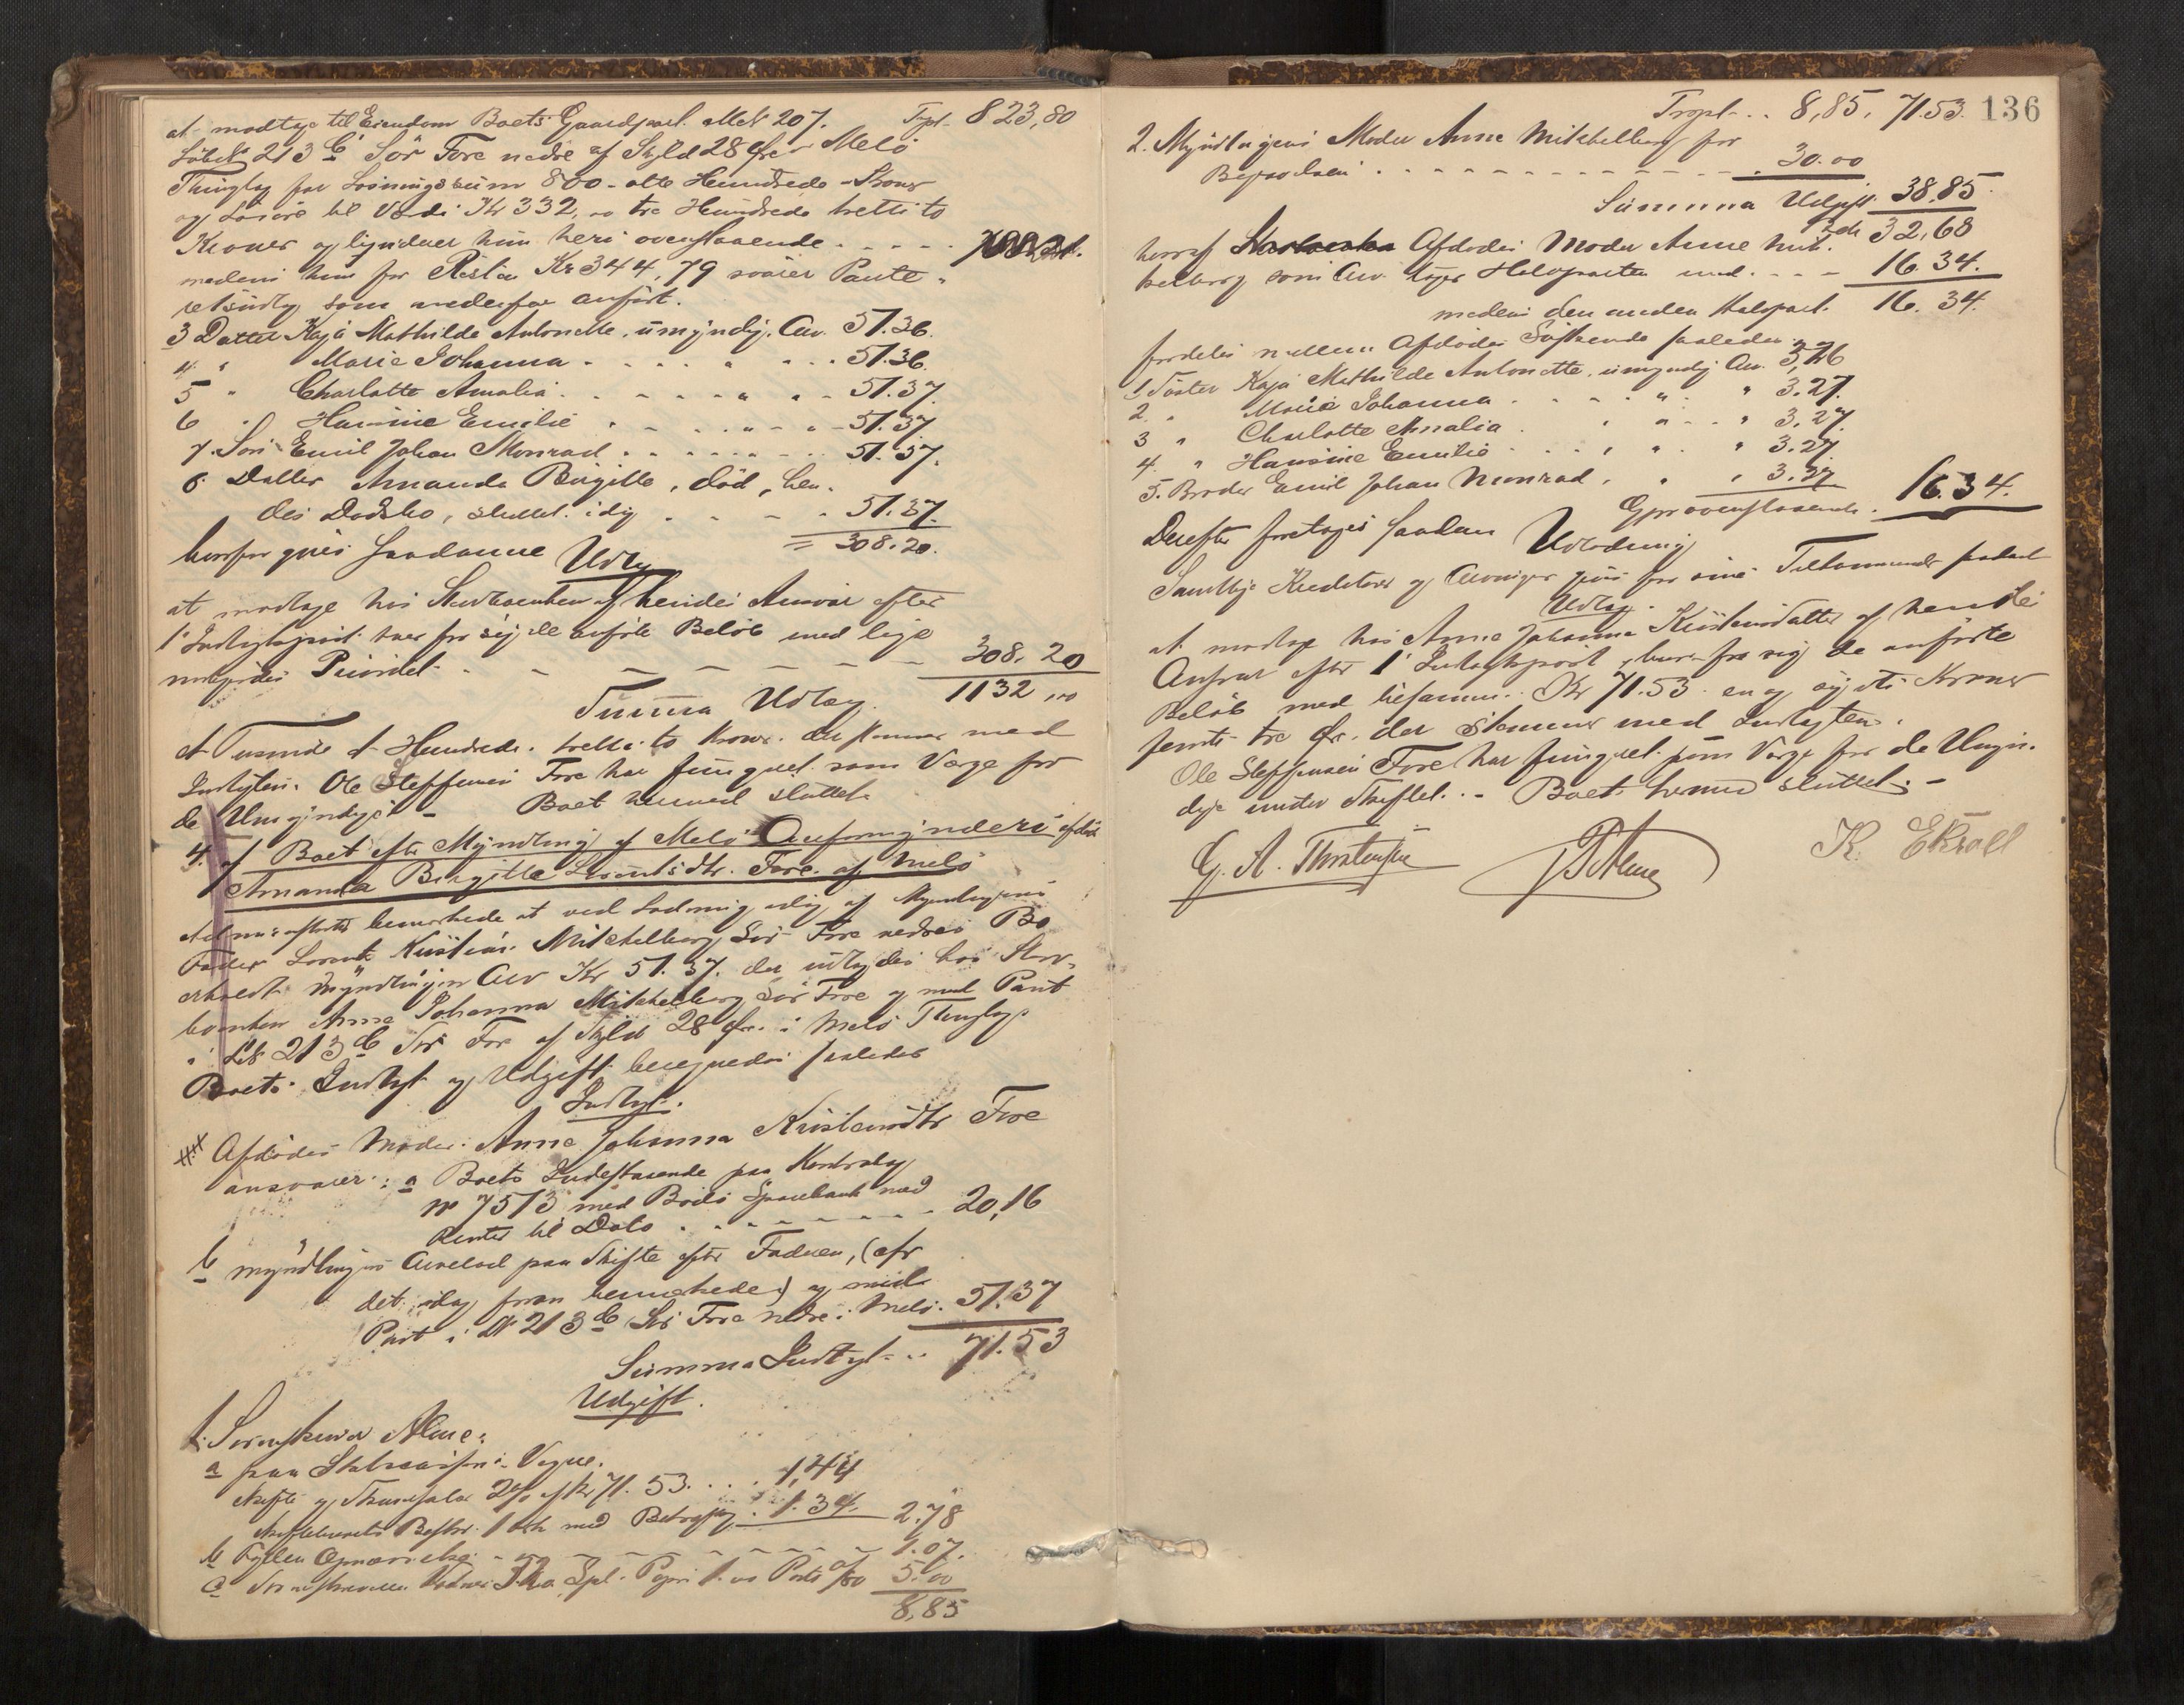 at modtage til Eiendom Boets Gaardpart Mat 207. Trpt. 823,80
Löbe No 213 b Sör Fore nedre af Skyld 28 Öre i Melö
Thinglag for Løsningssum 800 - otte Hundrede - Kroner
og Lösöre til Værdi Kr 332,00 tre Hundrede tretti to
Kroner og ligndner hun heri ovenstaaende
medens hun for Resten Kr 344,79 svarer Pante-
retsudlæg som nedenfor anført.
3 Datter Kaja Mathilde Antonette, umyndig, Arv. 51.36.
4. " Marie Johanna . . . . " . . . 51.36.
5 " Charlotte Amalia . . . . . " . . 51.37.
6 " Hansine Emilie . . . " . . 51.37
7. Sön Emil Johan Monrad . . . . . . . . 51.37.
8. Datter Amanda Birgitte, død, hen-
des Dødsbo, sluttet idag . . . . 51.37.
= 308.20.
hvorfor gives saadanne Udlæg
at modtage hos Stervboenken af hendes Ansvar efter
1 Indtægtspost hver for sig de anførte Beløb med lige
indbyrdes Prioritet . . . 308.20
Summa Udlæg. 1132,00
et Tusinde et Hundrede tretti to Kroner der stemmer med
Indtægten. Ole Steffensen Fore har fungeret som Værge for
de Umyndige - Boet hermed sluttet.
4. af Boet efter Myndling af Melö Overformynderi afdöd
Amanda Birgitte Lorentsdtr. Fore af Melö
bemærkede at ved Slutning idag af Myndlingens
Fader Lorentz Kristian Mikkelborg, Sör Fore nedres Bo
erholdt Myndlingen Arv Kr 51.37. der udlagdes hos Sterv-
boenken Anne Johanna Mikkelborg Sör Fore og med Pant
i LNo 213 b Sör Fore af Skyld 28 Öre i Melö Thinglag
Boets Indtægt og Udgift beregnedes saaledes
Indtægt.
Afdödes Moder Anne Johanna Kristensdtr Fore
ansvarer: a Boets Indestaaende paa Kontrabog
No 7513 med Bodö Sparebank med
Renter til Dato . . . . . . . . . 20,16
b Myndlingens Arvelod paa Skifte efter Faderen, (efr
det idag foran bemærkede) og med
Pant i No 213 b Sör Fore nedre i Melö. 51.37
Summa Indtægt . . 71.53
Udgift.
1. Sorenskriver Alme:
a paa Statscassens Vegne.
Skifte og Skrivesalær 2% af Kr 71.53. . . 1,44
Beskr. 1 Ark med Betræg. . 1.34. 2.78
b 1.07.
c 5.00
8,85
Trspt . . 8,85. 71.53. 136
2. Myndlingens Moder Anne Mikkelborg for
Begravelsen . . . . . . . . . . 30.00
Summa Udgift. 38.85.
32,68
hvoraf Afdødes Moder Anne Mik-
kelborg som Arv tager Halvparten med . . . 16.34.
medens den anden Halvpart. 16.34.
fordeles mellem Afdødes Söskende saaledes
1. Söster Kaja Mathilde Antonette, umyndig Arv. 3,26
2 " Marie Johanna . . . . " . " 3.27.
3 " Charlotte Amalia . . " . . " 3.27.
4. " Hansine Emilie . . . " . " 3.27.
5. Broder Emil Johan Monrad . " " 3.27
Gjør ovenstaaende. 16.34.
Derefter foretages saadan Udlodning
Samtlige Kreditorer og Arvinger gives for sine Tilkommende saadant
Udlæg.
at modtage hos Anne Johanna Kristensdatter af hendes
Ansvar efter 1 Indtægtspost, hver for sig de anførte
Beløb med tilsammen Kr 71.53. en og sytti Kroner
femti tre Öre. der stemmer med Indtægten.
Ole Steffensen Fore har fungeret som Værge for de Umyn-
dige under Skiftet. - Boet hermed sluttet. -
Alme K. Ekroll